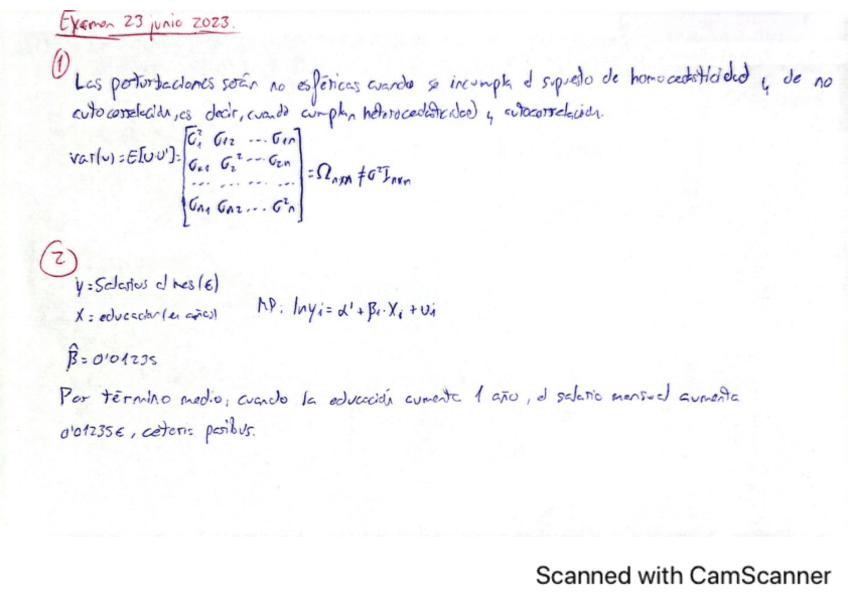 Examen 23 junio 2023.
①
Las perturbaciones serán no esféricas cuando se incumpla el supuesto de homocedasticidad y de no
autocorrelación, es decir, cuando cumplan heterocedasticidad y autocorrelación.
var(u)=E[UU']=[σ₁² σ₁₂ ... σ₁ₙ
σ₂₁ σ₂² ... σ₂ₙ
... ... ... ...
σₙ₁ σₙ₂ ... σ²ₙ] = Ωₙₓₙ ≠ σ²Iₙₓₙ
②
y=Salarios al mes (€)
X = educación (en años) MP: lnyᵢ = α' + β₁·Xᵢ + uᵢ
β̂ = 0'01235
Por término medio, cuando la educación aumenta 1 año, el salario mensual aumenta
0'01235€, ceteris paribus.
Scanned with CamScanner